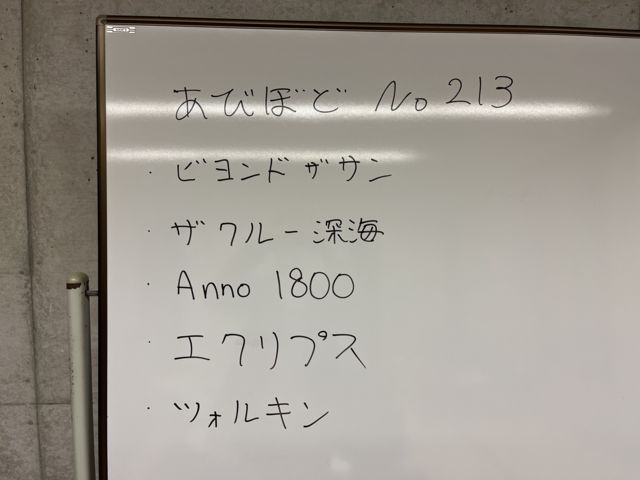 あびぼど No 213
・ビヨンドザサン
・ザクルー深海
・Anno 1800
・エクリプス
・ツォルキン